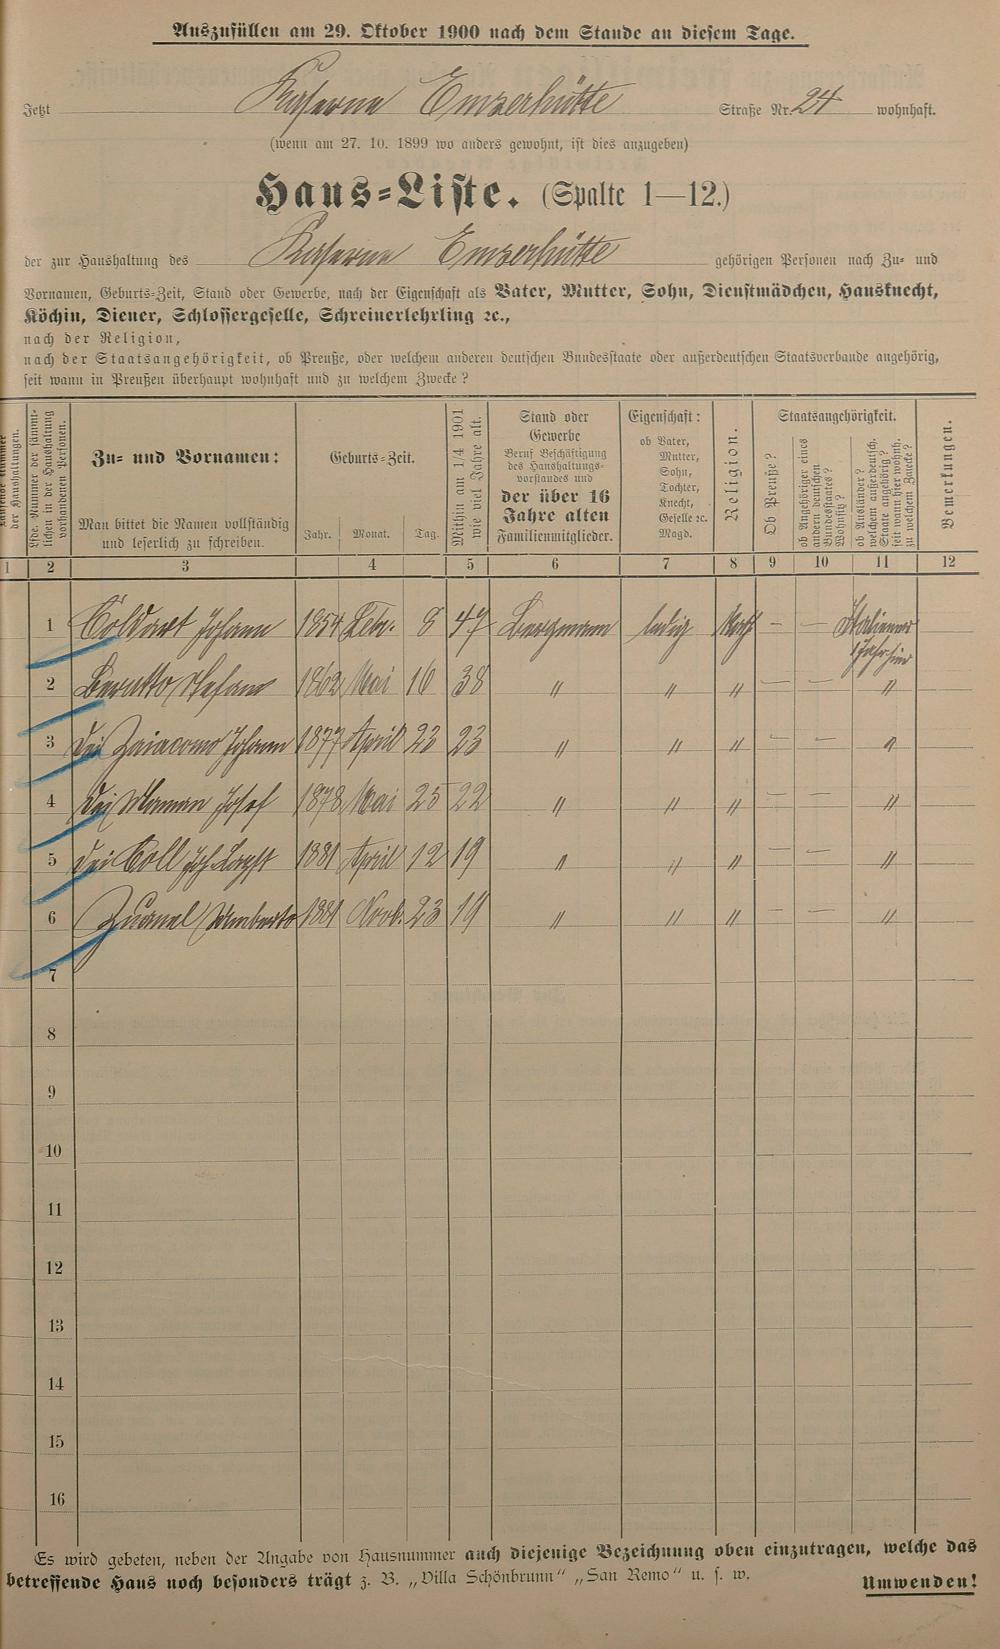 Auszufüllen am 29. Oktober 1900 nach dem Stande an diesem Tage.
Jetzt Kaserne Emserhütte Straße Nr. 24 wohnhaft.
(wenn am 27. 10. 1899 wo anders gewohnt, ist dies anzugeben)
Haus-Liste. (Spalte 1—12.)
der zur Haushaltung des Kaserne Emserhütte gehörigen Personen nach Zu- und
Vornamen, Geburts-Zeit, Stand oder Gewerbe, nach der Eigenschaft als Vater, Mutter, Sohn, Dienstmädchen, Hausknecht,
Köchin, Diener, Schlossergeselle, Schreinerlehrling ꝛc.,
nach der Religion,
nach der Staatsangehörigkeit, ob Preuße, oder welchem anderen deutschen Bundesstaate oder außerdeutschen Staatsverbande angehörig,
seit wann in Preußen überhaupt wohnhaft und zu welchem Zwecke?
Nummer der Haushaltungen.
Lfde. Nummer der sämmtlichen in der Haushaltung vorhandenen Personen.
Zu- und Vornamen:
Man bittet die Namen vollständig
und leserlich zu schreiben.
Geburts-Zeit.
Jahr. Monat. Tag.
Mithin am 1/4 1901 wie viel Jahre alt.
Stand oder
Gewerbe
Beruf Beschäftigung
des Haushaltungs-
vorstandes und
der über 16
Jahre alten
Familienmitglieder.
Eigenschaft:
ob Vater,
Mutter,
Sohn,
Tochter,
Knecht,
Geselle ꝛc.
Magd.
Religion.
Staatsangehörigkeit.
Ob Preuße?
ob Angehöriger eines
andern deutschen
Bundesstaates?
Wohnsitz?
ob Ausländer?
welchem außerdeutsch.
Staate angehörig?
seit wann hier wohnh.
zu welchem Zwecke?
Bemerkungen.
1 2 3 4 5 6 7 8 9 10 11 12
1 Johann 1854 Febr. 8 47 Bergmann ledig Kath — — Italiener
1 Jahr hier
2 Stefano 1862 Mai 16 38 〃 〃 〃 — — 〃
3 Dei Zaiacomo Johann 1877 April 23 23 〃 〃 〃 — — 〃
4 Dei Josef 1878 Mai 25 22 〃 〃 〃 — — 〃
5 Dei Coll Joh. 1881 April 12 19 〃 〃 〃 — — 〃
6 Zuanel Umberto 1881 Novb. 23 19 〃 〃 〃 — — 〃
7
8
9
10
11
12
13
14
15
16
Es wird gebeten, neben der Angabe von Hausnummer auch diejenige Bezeichnung oben einzutragen, welche das
betreffende Haus noch besonders trägt z. B. „Villa Schönbrunn" „San Remo" u. s. w. Umwenden!